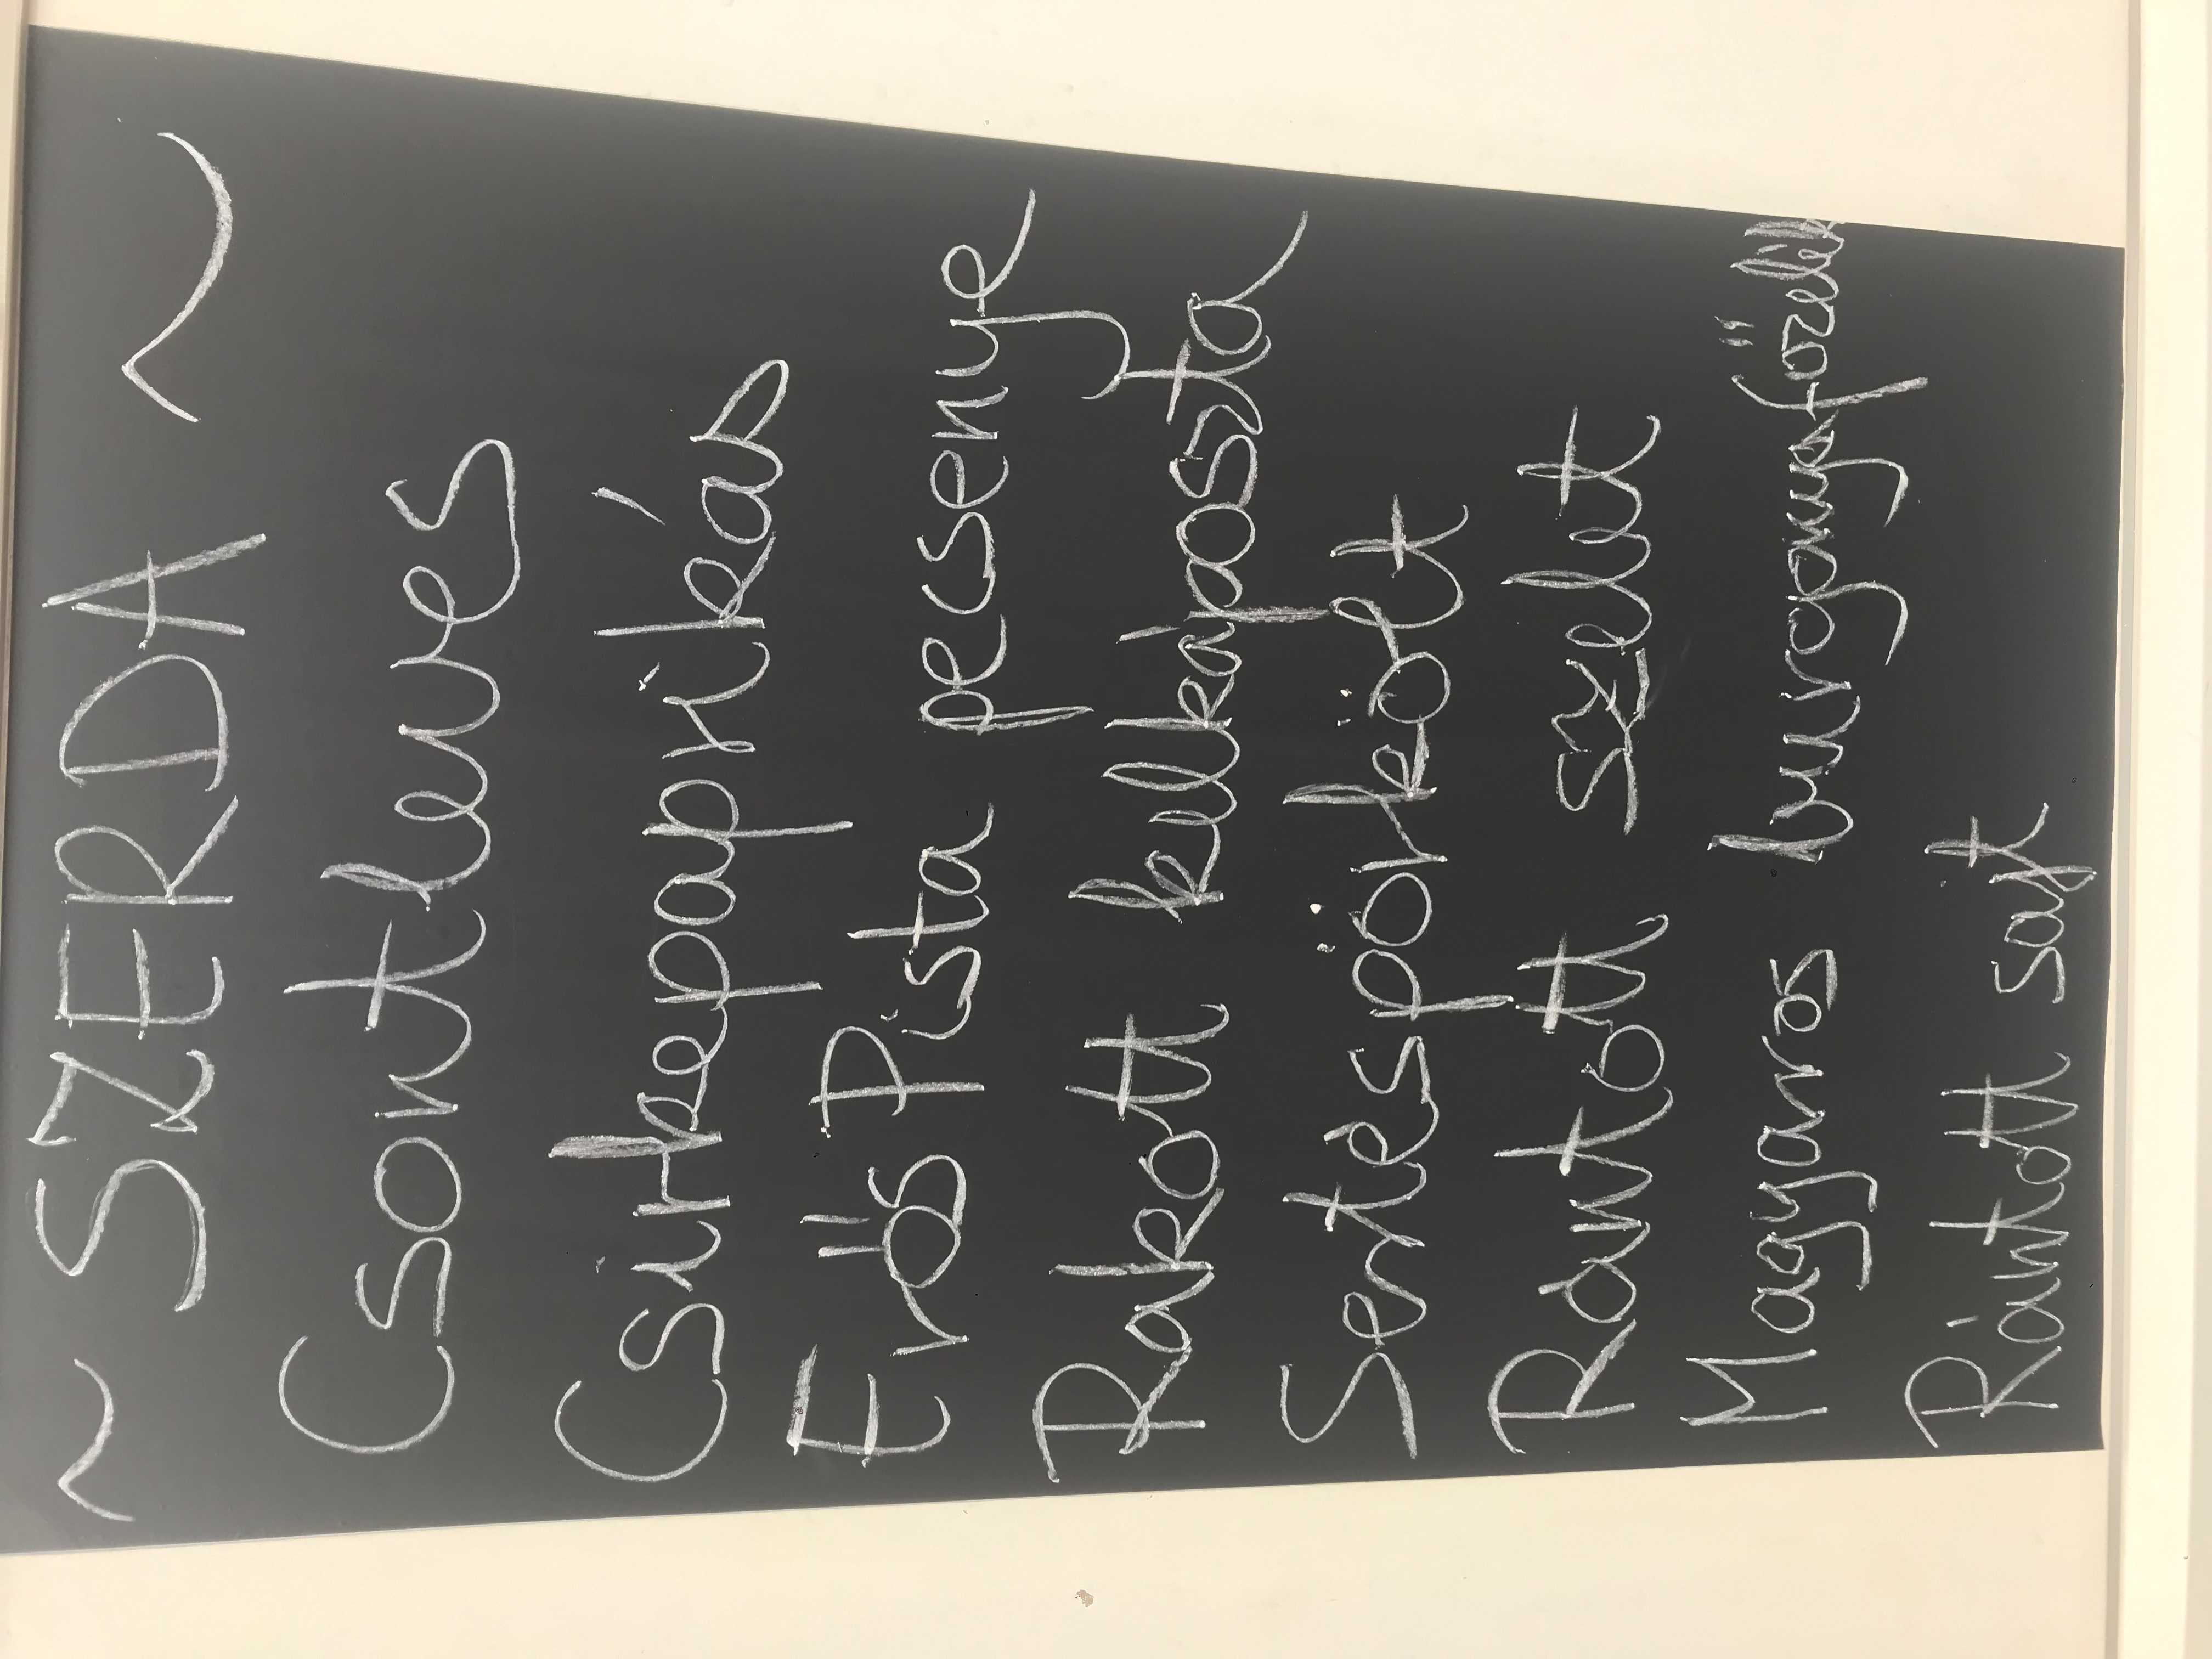 ~ SZERDA ~
Csontleves
Csirkepaprikás
Erős Pista pecsenye
Rakott kelkáposzta
Sertéspörkölt
Rantott szelet
Magyaros burgonyafőzelék
Rántott sajt